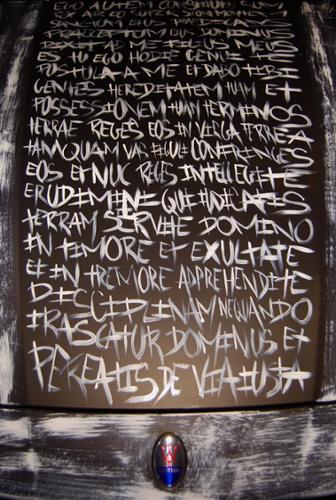 EGO AUTEM SUM
PRAECEPTUM EIUS DOMINUS
DIXIT AD ME FILIUS MEUS
ES TU EGO HODIE GENUI TE
POSTULA A ME ET DABO TIBI
GENTES HEREDITATEM TUAM ET
POSSESSIONEM TUAM TERMINOS
TERRAE REGES EOS IN VIRGA FERREA
TAMQUAM VAS FIGULI CONFRINGES
EOS ET NUNC REGES INTELLEGITE
ERUDIMINI QUI IUDICATIS
TERRAM SERVITE DOMINO
IN TIMORE ET EXULTATE
EI IN TREMORE ADPREHENDITE
DISCIPLINAM NEQUANDO
IRASCATUR DOMINUS ET
PEREATIS DE VIA IUSTA